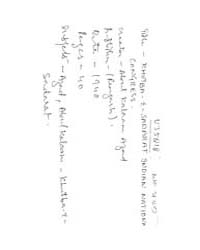 Title - KHUTBA-E-SADARAT INDIAN NATIONAL
CONGRESS.
Creator - Abul Kalaam Azad
Publisher - (Ramgarh).
Date - 1940
Pages - 40
Subjects - Azad, Abul Kalaam - Khutba-e-
Sadarat.